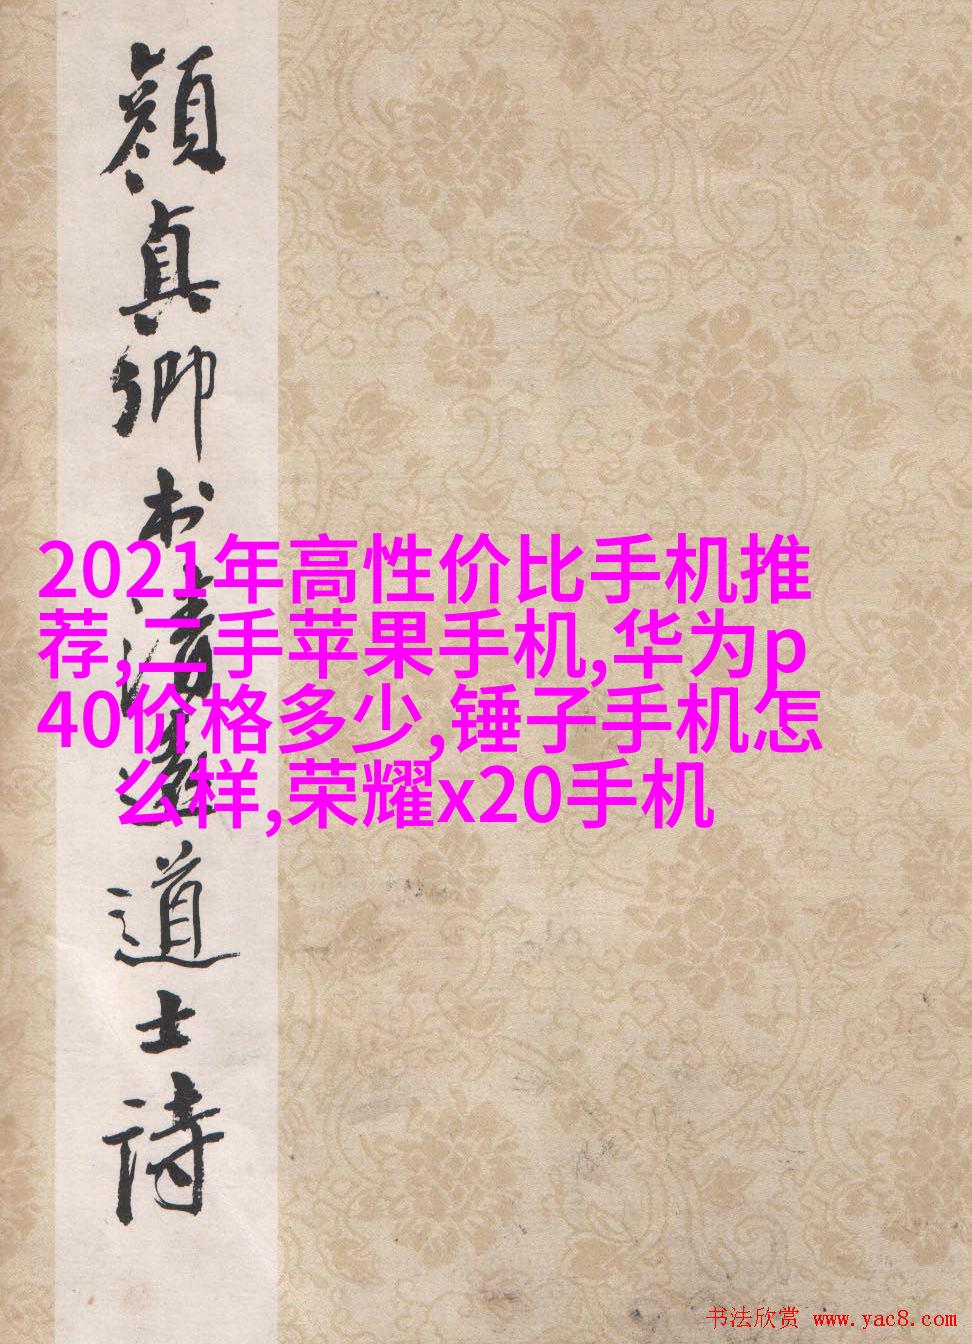 顏真卿书清遠道士詩
2021年高性价比手机推
荐,二手苹果手机,华为p
40价格多少,锤子手机怎
么样,荣耀x20手机
书法欣赏 www.yac8.com